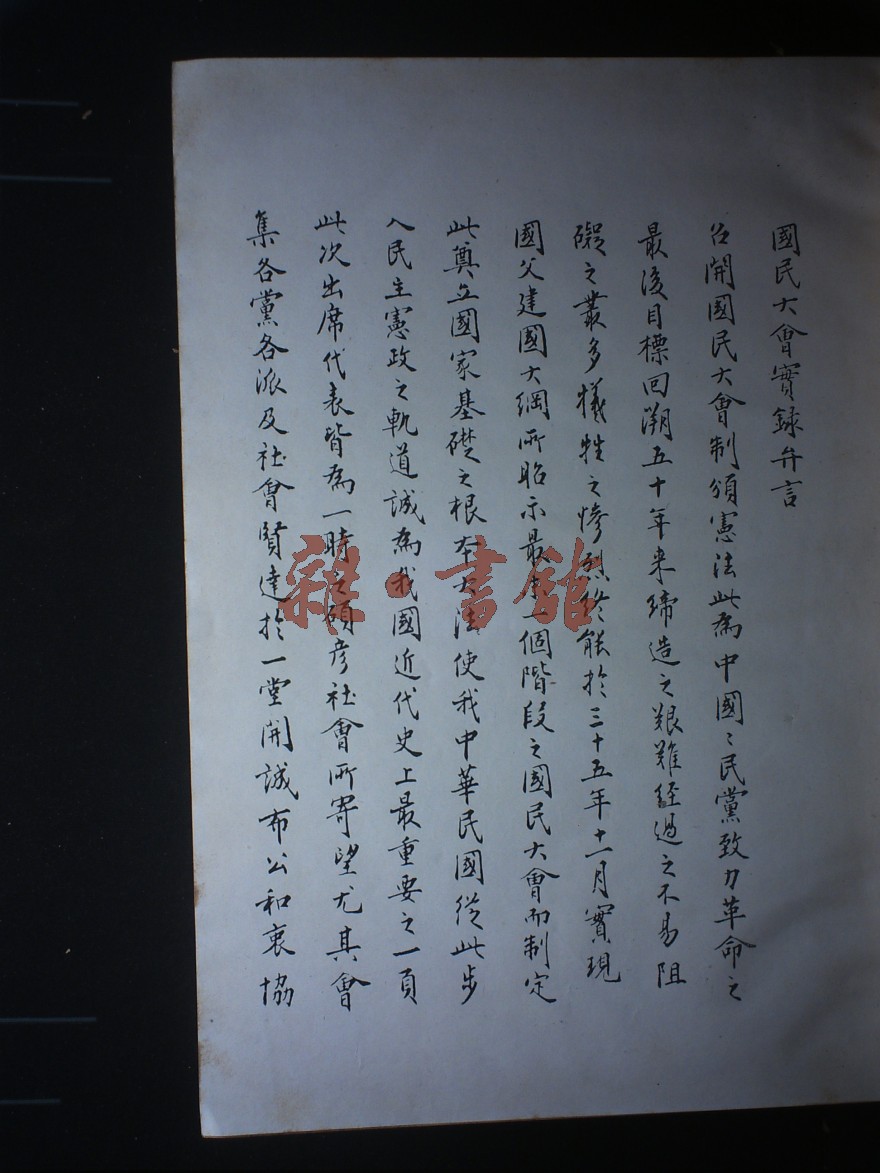 國民大會實録弁言
召開國民大會制頒憲法此為中國〻民黨致力革命之
最後目標回溯五十年来締造之艱難經過之不易阻
礙之叢多犠牲之慘烈終能於三十五年十一月實現
國父建國大綱所昭示最末一個階段之國民大會而制定
此奠立國家基礎之根本大法使我中華民國從此步
入民主憲政之軌道誠為我國近代史上最重要之一頁
此次出席代表皆為一時之碩彦社會所寄望尤其會
集各黨各派及社會賢達於一堂開誠布公和衷協
雜·書館